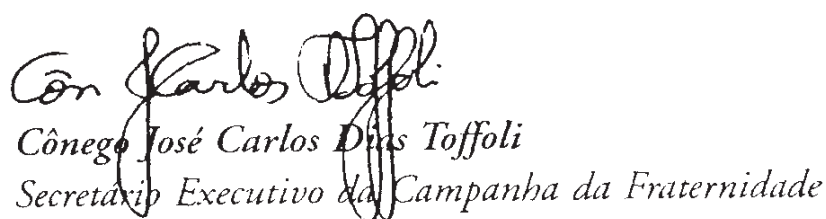 Côn J Carlos D Toffoli
Cônego José Carlos Dias Toffoli
Secretário Executivo da Campanha da Fraternidade